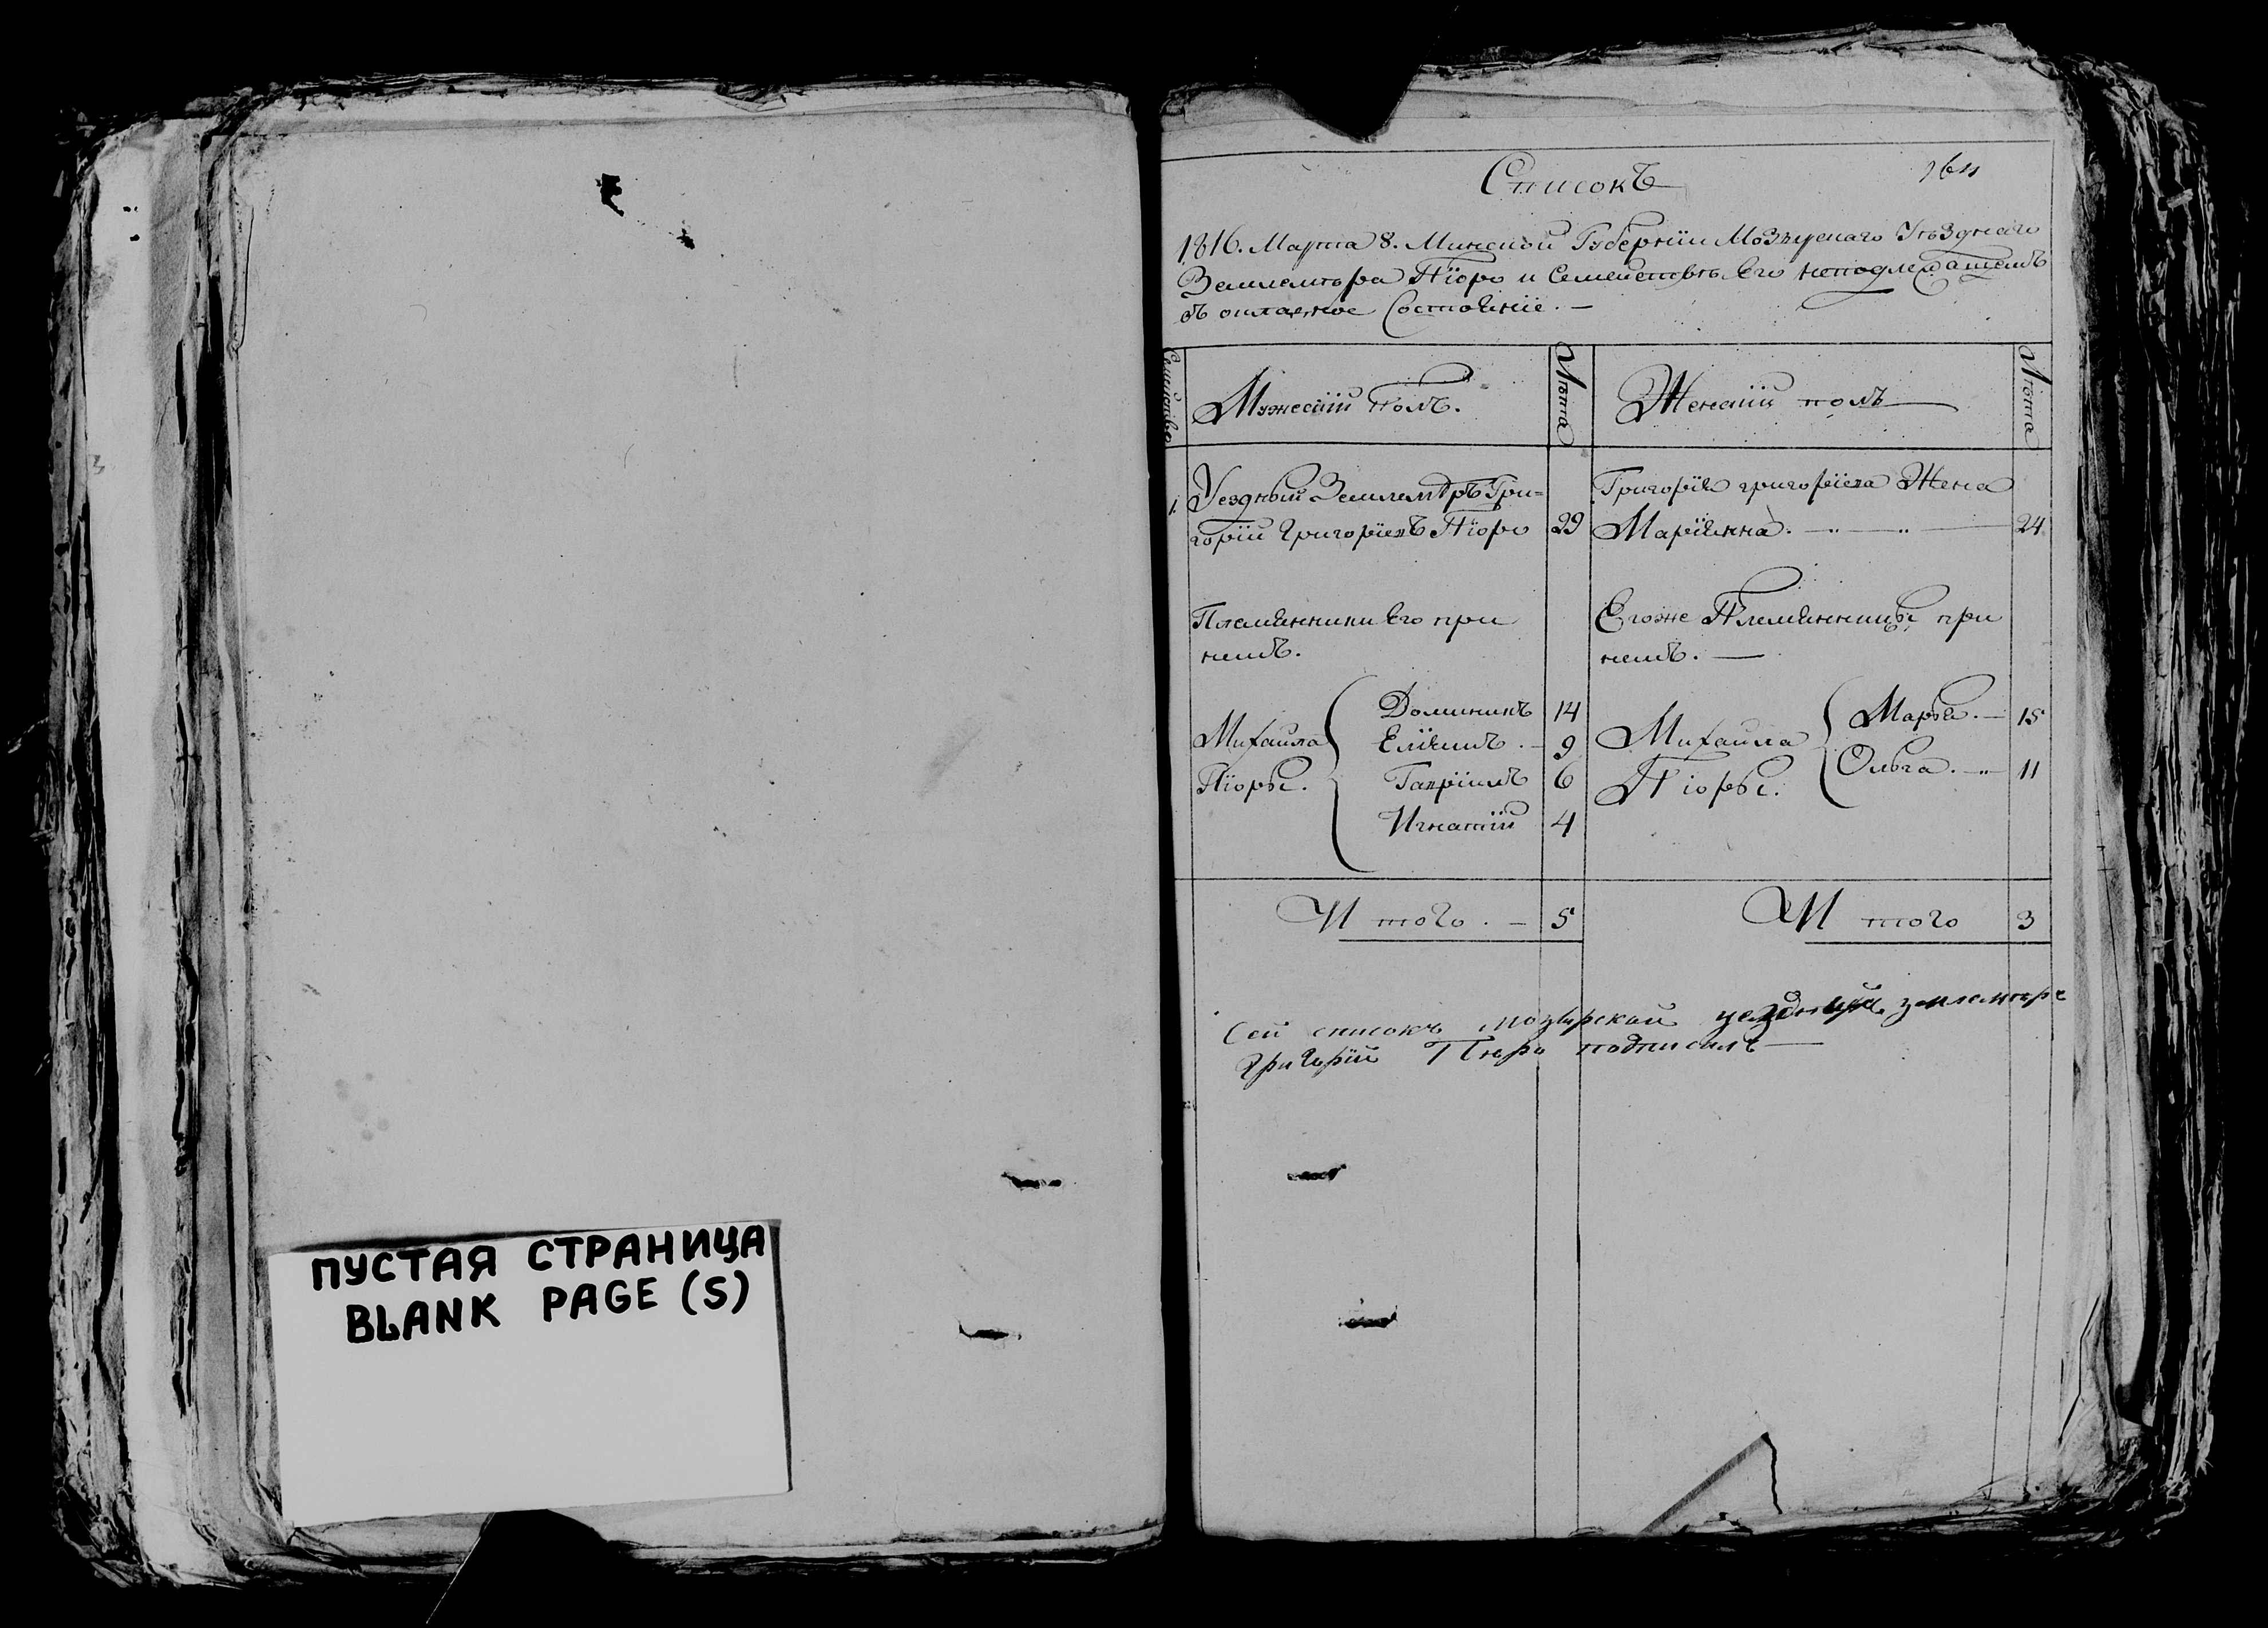 ПУСТАЯ СТРАНИЦА
BLANK PAGE (S)
Списокъ
1816. Марта 8. Минской Губернiи Мозырскаго Уѣзднаго
Землемѣра Пiоро и Семействѣ Его неподлежащемъ
въ окладное Состоянiе. —
Семейство
Мужескiй полъ.
Лѣта
Женскiй полъ
Лѣта
1. Уездный Землемѣръ Гри=
горiй Григорiевъ Пiоро 29
Григорiя григорiева Жена
Марiянна. 24
Племянники Его при
немъ.
Егоже Племянницы при
немъ. —
Михаила Пiоры.
Доминикъ 14
Елiяшъ. 9
Гаврiилъ 6
Игнатiй 4
Михаила Пiоры.
Марья. — 15
Ольга. — 11
И того. — 5
И того 3
Сей списокъ мозырской уездный землемѣръ
Григорiй Пюро подписалъ —